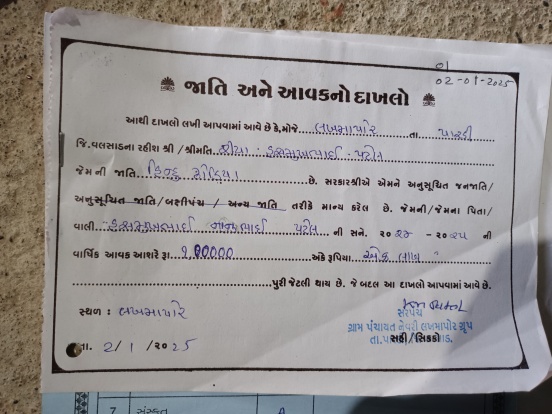 01
02-01-2025
જાતિ અને આવકનો દાખલો
આથી દાખલો લખી આપવામાં આવે છે કે, મોજે. લખમાપોર તા. પારડી
જિ.વલસાડના રહીશ શ્રી / શ્રીમતિ. હસમુખભાઈ પટેલ
જેમની જાતિ. હિન્દુ ધોડિયા છે. સરકારશ્રીએ એમને અનુસૂચિત જનજાતિ/
અનુસૂચિત જાતિ/બક્ષીપંચ / અન્ય જાતિ તરીકે માન્ય કરેલ છે. જેમની/જેમના પિતા/
વાલી. હસમુખભાઈ નાનુભાઈ પટેલ ની સને. ૨૦૨૪ - ૨૦૨૫ ની
વાર્ષિક આવક આશરે રૂા. ૧,00000 અંકે રૂપિયા. એક લાખ
પુરી જેટલી થાય છે. જે બદલ આ દાખલો આપવામાં આવે છે.
સ્થળ : લખમાપોર
સરપંચ
ગ્રામ પંચાયત નેવરી લખમાપોર ગ્રુપ
સહી/સિક્કો
તા. 2/1/૨૦25
7 સંસ્કૃત A